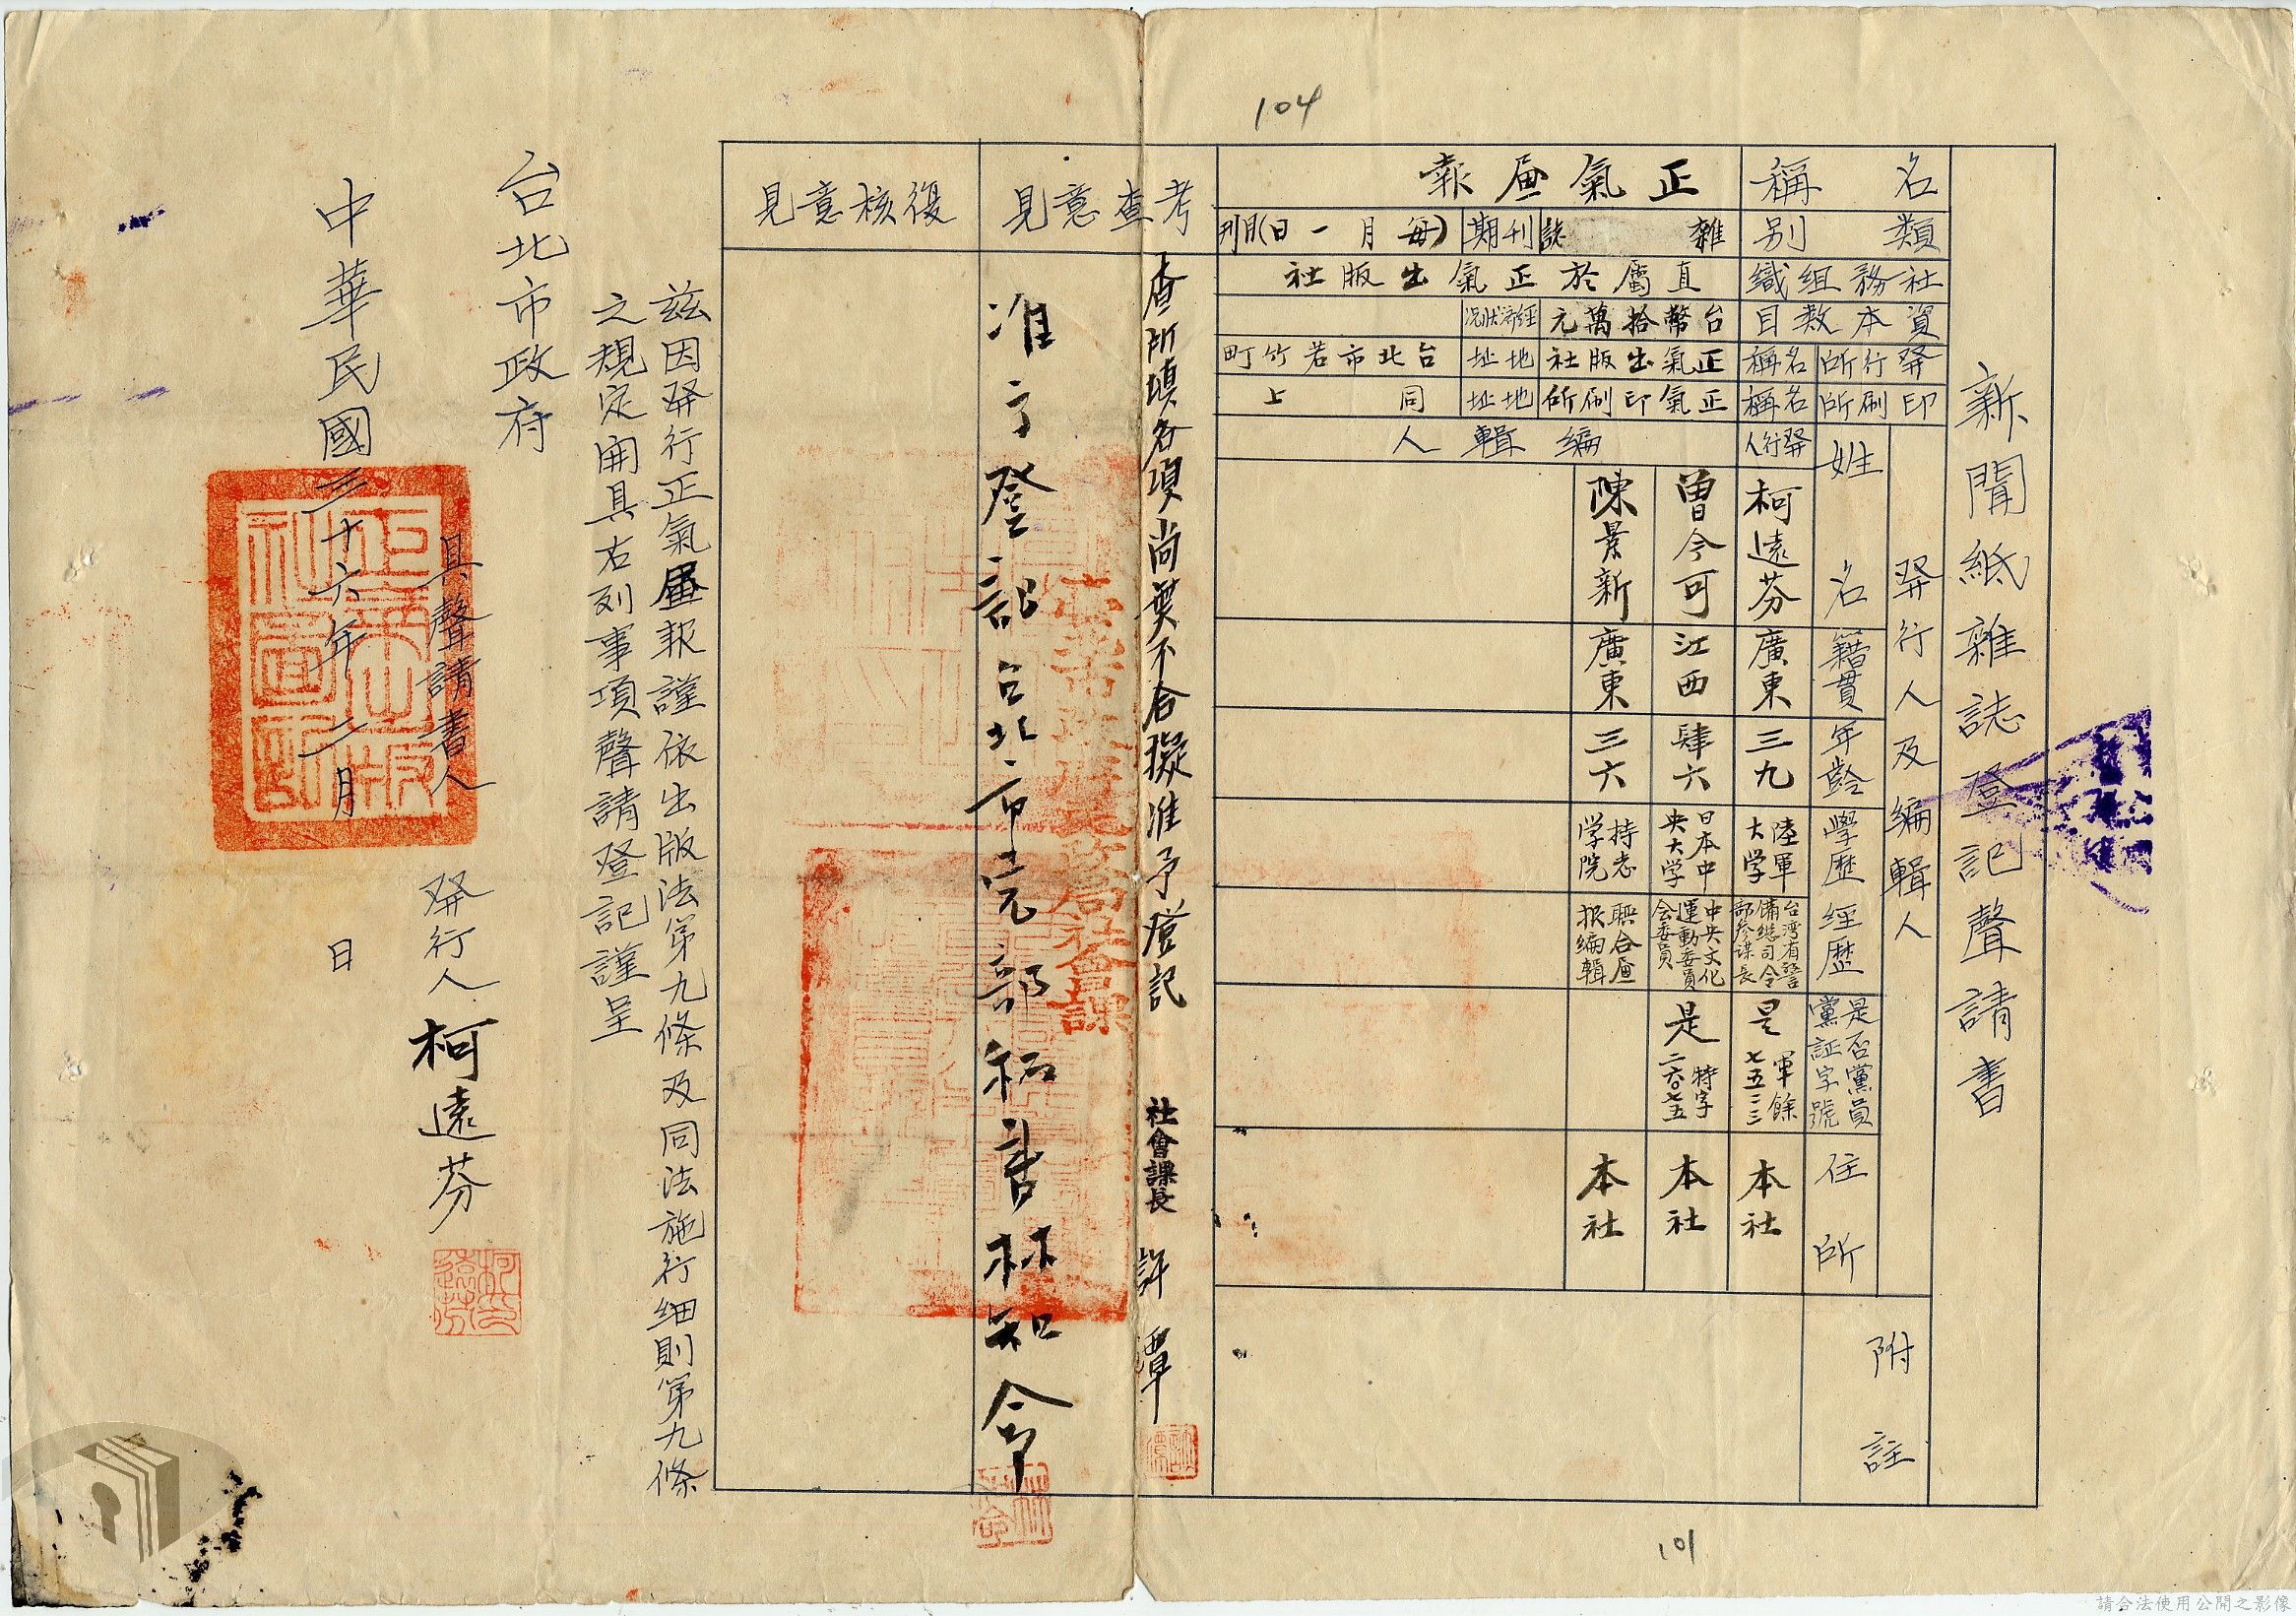 104
新聞紙雜誌登記聲請書
名稱 正氣画報
類別 雜誌 刊期 月刊(每月一日)
社務組織 直屬於正氣出版社
資本数目 台幣拾萬元 經濟狀況
發行所 名稱 正氣出版社 地址 台北市若竹町
印刷所 名稱 正氣印刷所 地址 同上
發行人及編輯人
姓名 籍貫 年齡 學歷 經歷 是否黨員黨証字號 住所
附註
發行人
柯遠芬 廣東 三九 陸軍大学 台湾省警備總司令部參謀長 是 軍餘七五二三 本社
編輯人
曽今可 江西 肆六 日本中央大学 中央文化運動委員会委員 是 特字二六〇七五 本社
陳景新 廣東 三六 持志学院 聯合画报編輯 本社
考查意見
查所填各項尚無不合擬准予登記
社會課長 許
准予登記台北市党部
復核意見
茲因發行正氣画报謹依出版法第九條及同法施行細則第九條
之規定開具右列事項聲請登記謹呈
台北市政府
具聲請書人 發行人 柯遠芬
中華民國三十六年二月 日
101
請合法使用公開之影像